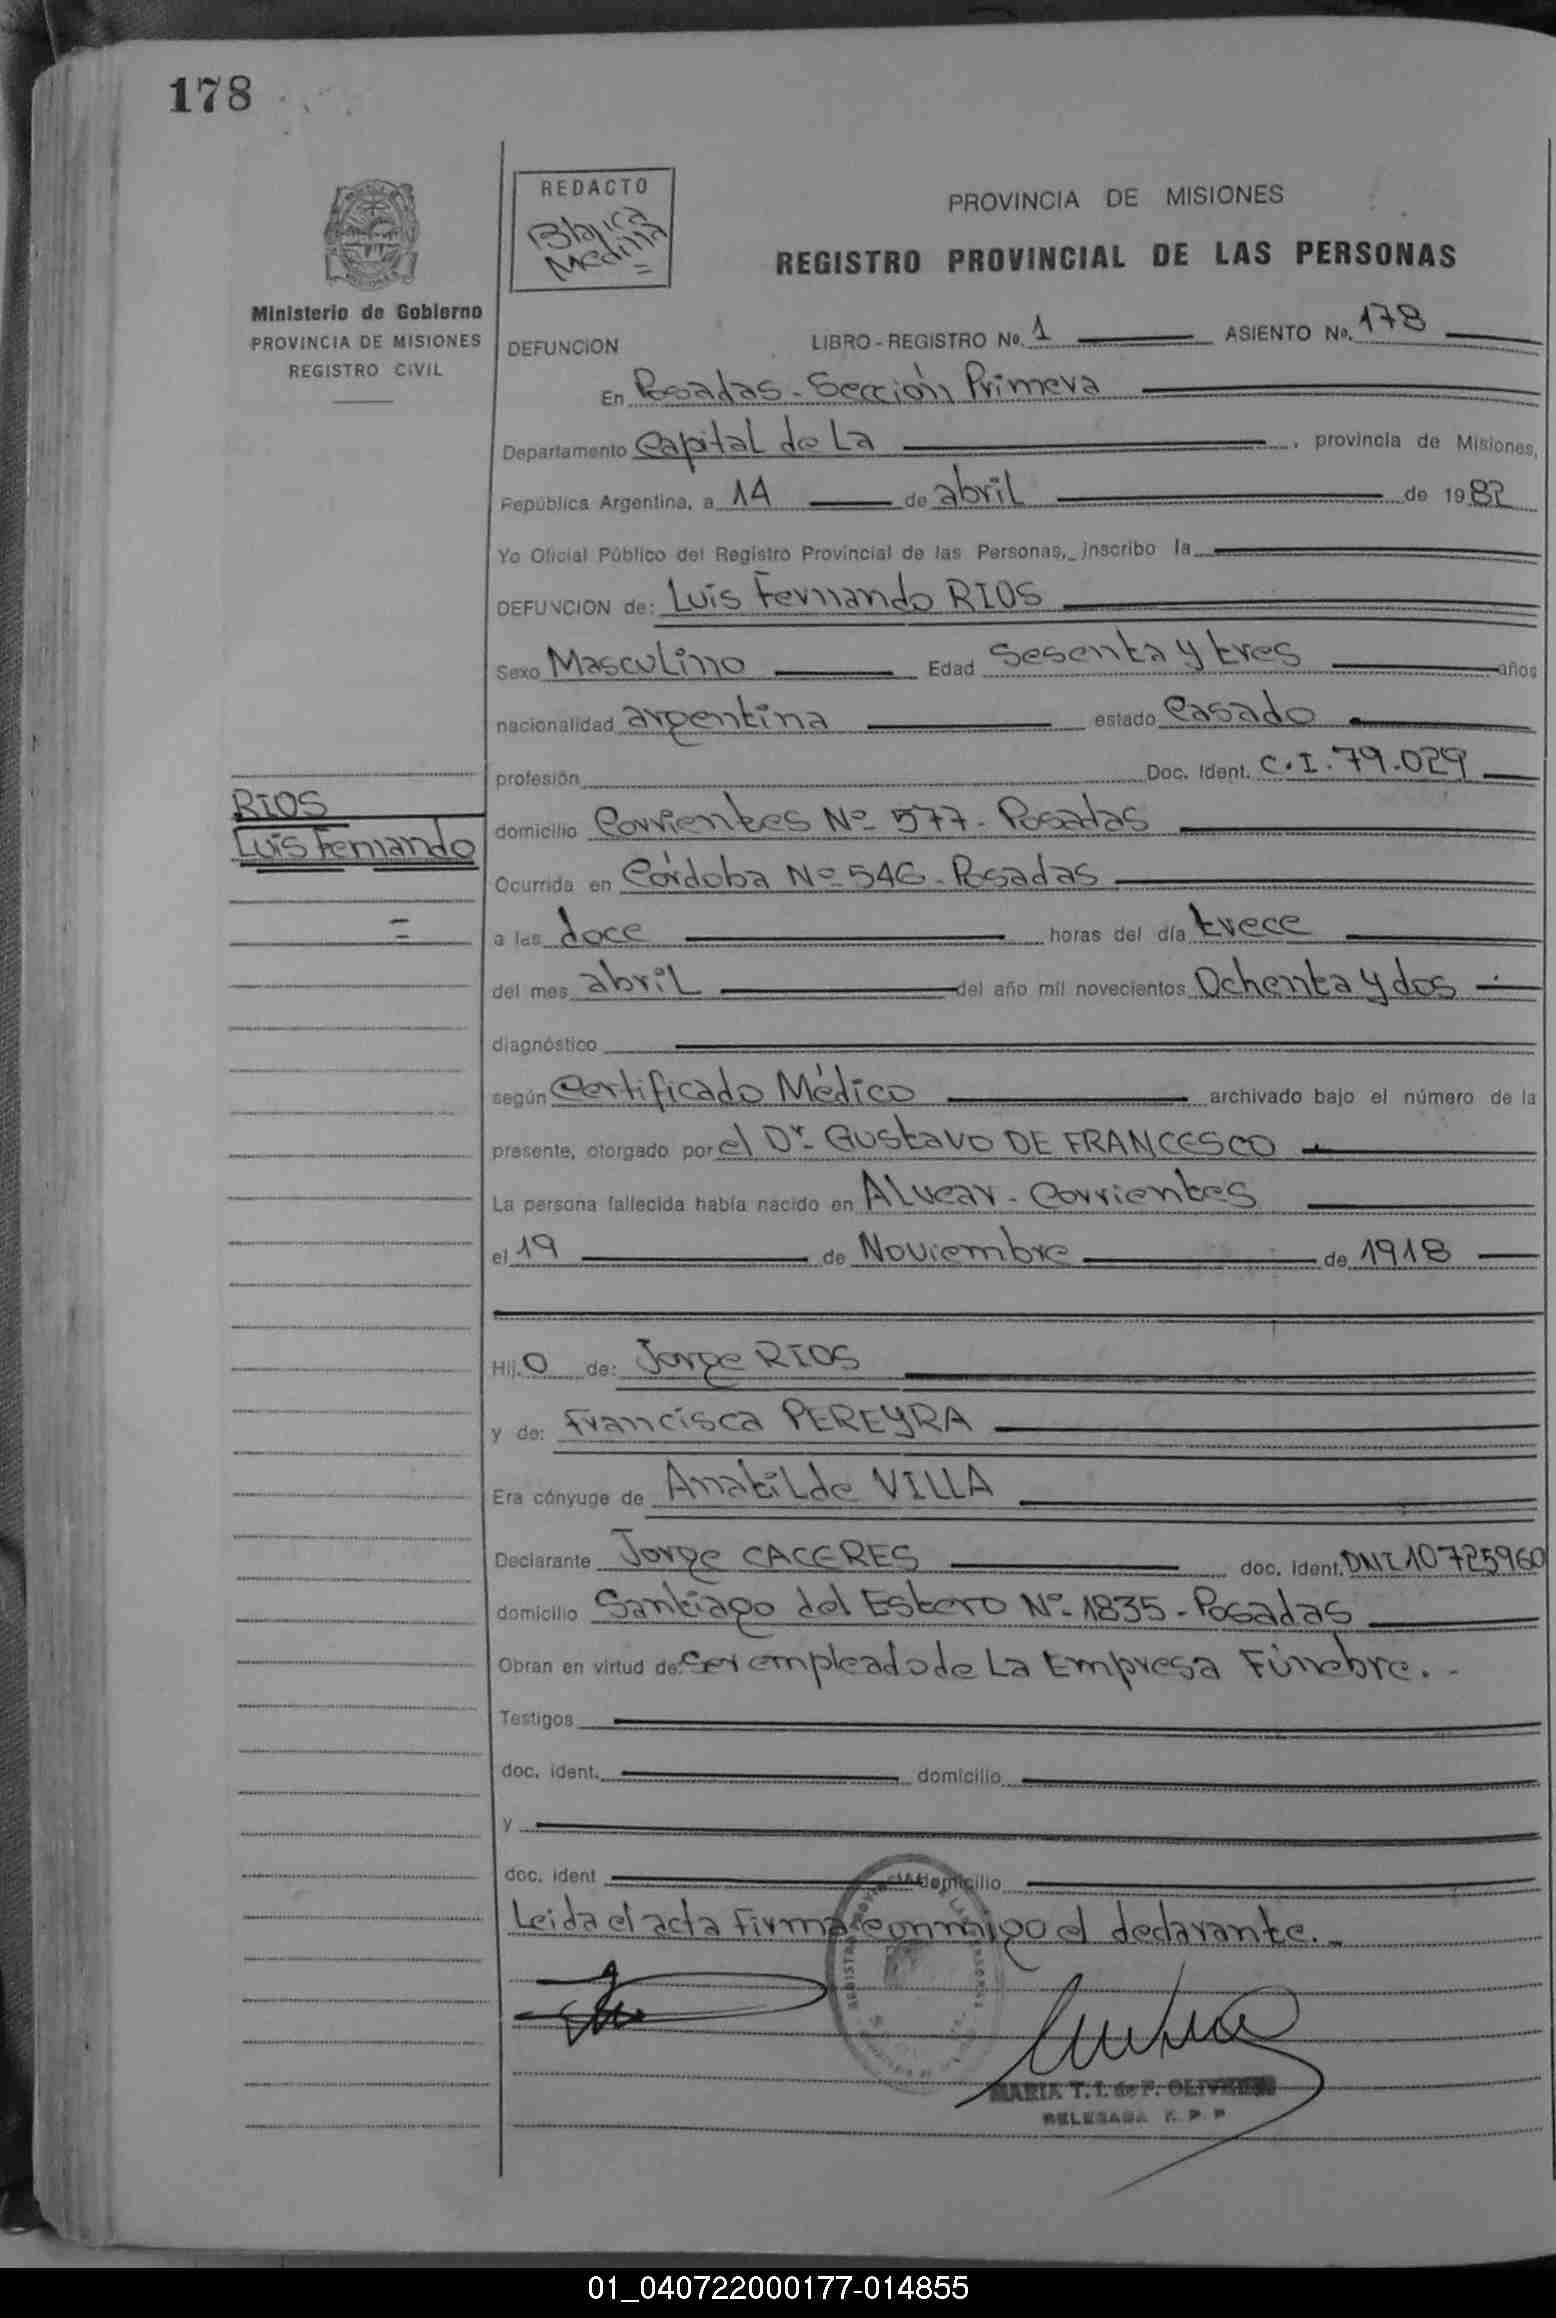 178
REDACTO
Blanca
Medina
Ministerio de Gobierno
PROVINCIA DE MISIONES
REGISTRO CIVIL
PROVINCIA DE MISIONES
REGISTRO PROVINCIAL DE LAS PERSONAS
DEFUNCION LIBRO - REGISTRO No. 1 ASIENTO No. 178
En Posadas - Sección Primera
Departamento Capital de La , provincia de Misiones,
República Argentina, a 14 de abril de 1982
Yo Oficial Público del Registro Provincial de las Personas, inscribo la
DEFUNCION de: Luis Fernando RIOS
Sexo Masculino Edad Sesenta y tres años
nacionalidad argentina estado Casado
profesión Doc. Ident. C.I. 79.029
RIOS
Luis Fernando
domicilio Corrientes Nº 577 - Posadas
Ocurrida en Córdoba Nº 546 - Posadas
a las doce horas del día trece
del mes abril del año mil novecientos Ochenta y dos
diagnóstico
según Certificado Médico archivado bajo el número de la
presente, otorgado por el Dr. Gustavo DE FRANCESCO
La persona fallecida había nacido en Alvear - Corrientes
el 19 de Noviembre de 1918
Hij o de: Jorge RIOS
y de: Francisca PEREYRA
Era cónyuge de Anatilde VILLA
Declarante Jorge CACERES doc. ident. DNI 10725960
domicilio Santiago del Estero Nº 1835 - Posadas
Obran en virtud de: Ser empleado de La Empresa Fúnebre. -
Testigos
doc. ident. domicilio
y
doc. ident domicilio
Leida el acta firma conmigo el declarante. -
MARIA T. I. de F.
DELEGADA
01_040722000177-014855